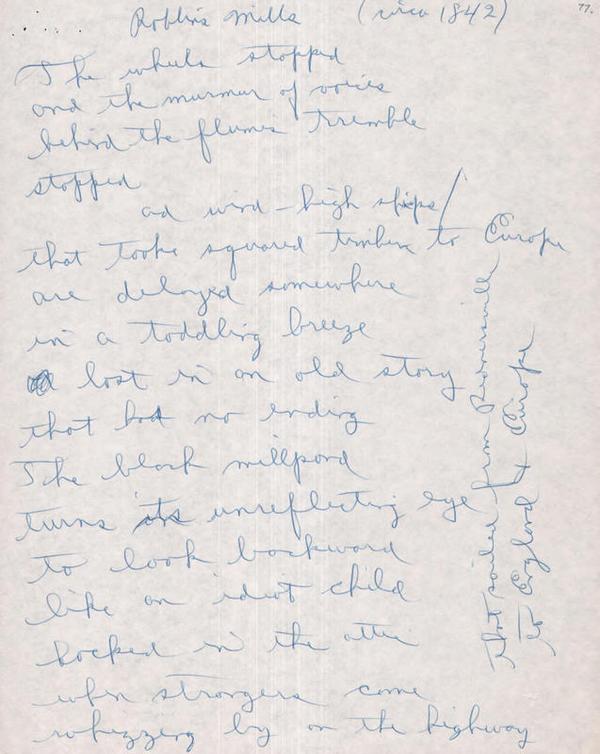 Roblin's Mills (circa 1842) 77.
The wheels stopped
and the murmur of voices
behind the flume's tremble
stopped
ad wind-high ships/
that tooke squared timber to Europe
are delayed somewhere
in a toddling breeze
lost in an old story
that had no ending
The black millpond
turns its unreflecting eye
to look backward
like an idiot child
locked in the attic
when strangers come
whizzing by on the highway
that sailed from Rednersville
to England & Europe